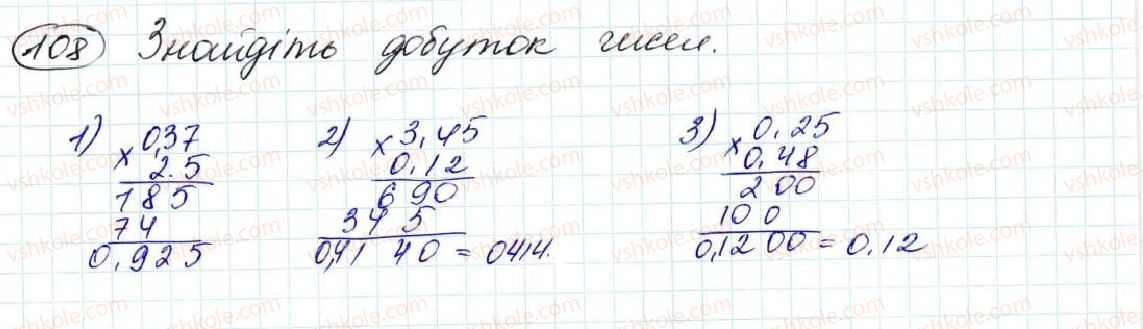 108 Знайдіть добуток чисел.
1) 0,37 2) 3,45 3) 0,25
x 2.5 x 0,12 x 0,48
185 690 200
74 345 100
0,925 0,4140 = 0414. 0,1200 = 0,12